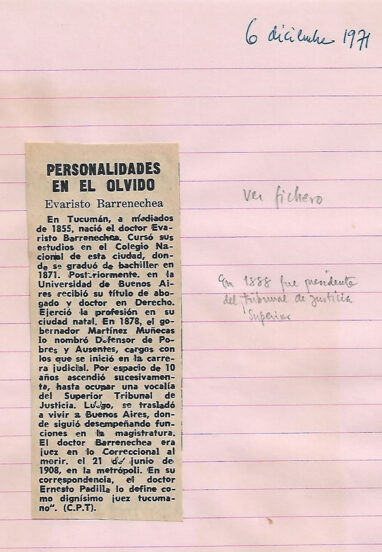 6 diciembre 1971
PERSONALIDADES
EN EL OLVIDO
Evaristo Barrenechea
En Tucumán, a mediados
de 1855, nació el doctor Eva-
risto Barrenechea. Cursó sus
estudios en el Colegio Nacio-
nal de esta ciudad, don-
de se graduó de bachiller en
1871. Posteriormente, en la
Universidad de Buenos Ai-
res recibió su título de abo-
gado y doctor en Derecho.
Ejerció la profesión en su
ciudad natal. En 1878, el go-
bernador Martínez Muñecas
lo nombró Defensor de Po-
bres y Ausentes, cargos con
los que se inició en la carre-
ra judicial. Por espacio de 10
años ascendió sucesivamen-
te, hasta ocupar una vocalía
del Superior Tribunal de
Justicia. Luego, se trasladó
a vivir a Buenos Aires, don-
de siguió desempeñando fun-
ciones en la magistratura.
El doctor Barrenechea era
juez en lo Correccional al
morir, el 21 de junio de
1908, en la metrópoli. En su
correspondencia, el doctor
Ernesto Padilla lo define co-
mo dignísimo juez tucuma-
no". (C.P.T).
Ver fichero
En 1888 fue presidente
del Tribunal de Justicia
Superior